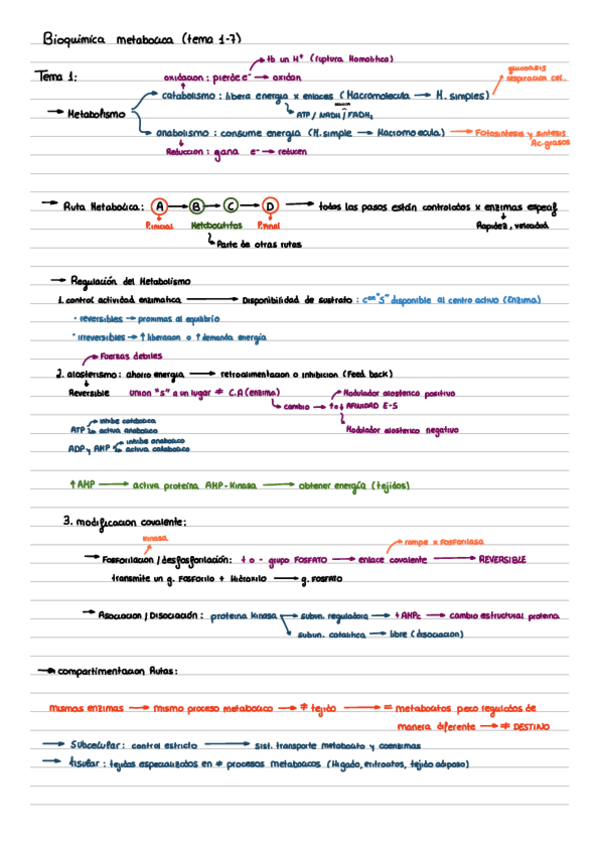 Bioquímica metabolica (tema 1-7)
tb un H⁺ (ruptura Homolitica)
Tema 1:
oxidacion: pierde e⁻ → oxidan
glucolisis
respiracion cel.
catabolismo: libera energia x enlaces (Macromolecula → M. simples)
→ Metabolismo
ATP / NADH / FADH₂
anabolismo: consume energia (M. simple → Macromolecula) → Fotosintesis y sintesis
Ac. grasos
Reduccion: gana e⁻ → reducen
→ Ruta Metabolica: A → B → C → D → todos los pasos están controlados x enzimas especif.
P. inicial Metabolitos P. final Rapidez, velocidad
Parte de otras rutas
→ Regulación del Metabolismo
1. control actividad enzimatica → Disponibilidad de sustrato: cᵒⁿ "S" disponible al centro activo (Enzima)
· reversibles → proximas al equilibrio
· irreversibles → ↑ liberacion o ↑ demanda energia
Fuerzas debiles
2. alosterismo: ahorro energia → retroalimentacion o inhibicion (Feed back)
Reversible union "s" a un lugar ≠ C.A (enzima) Modulador alosterico positivo
cambio → ↑o↓ AFINIDAD E-S
Modulador alosterico negativo
ATP inhibe catabolico
activa anabolico
ADP y AMP inhibe anabolico
activa catabolico
↑ AMP → activa proteína AMP-Kinasa → obtener energía (tejidos)
3. modificacion covalente:
Kinasa
rompe x fosforilasa
→ Fosforilacion / desfosforilación: + o - grupo FOSFATO → enlace covalente → REVERSIBLE
transmite un g. fosforilo + Hidroxilo → g. FOSFATO
→ Asociacion / Disociación: proteina Kinasa subun. reguladora → ↑ AMPc → cambio estructural proteina
subun. catalitica → libre (disociacion)
→ compartimentacion Rutas:
mismas enzimas → mismo proceso metabolico → ≠ tejido → = metabolitos pero regulados de
manera diferente → ≠ DESTINO
→ Subcelular: control estricto → sist. transporte metabolito y coenzimas
→ tisular: tejidos especializados en ≠ procesos metabolicos (Higado, eritrocitos, tejido adiposo)